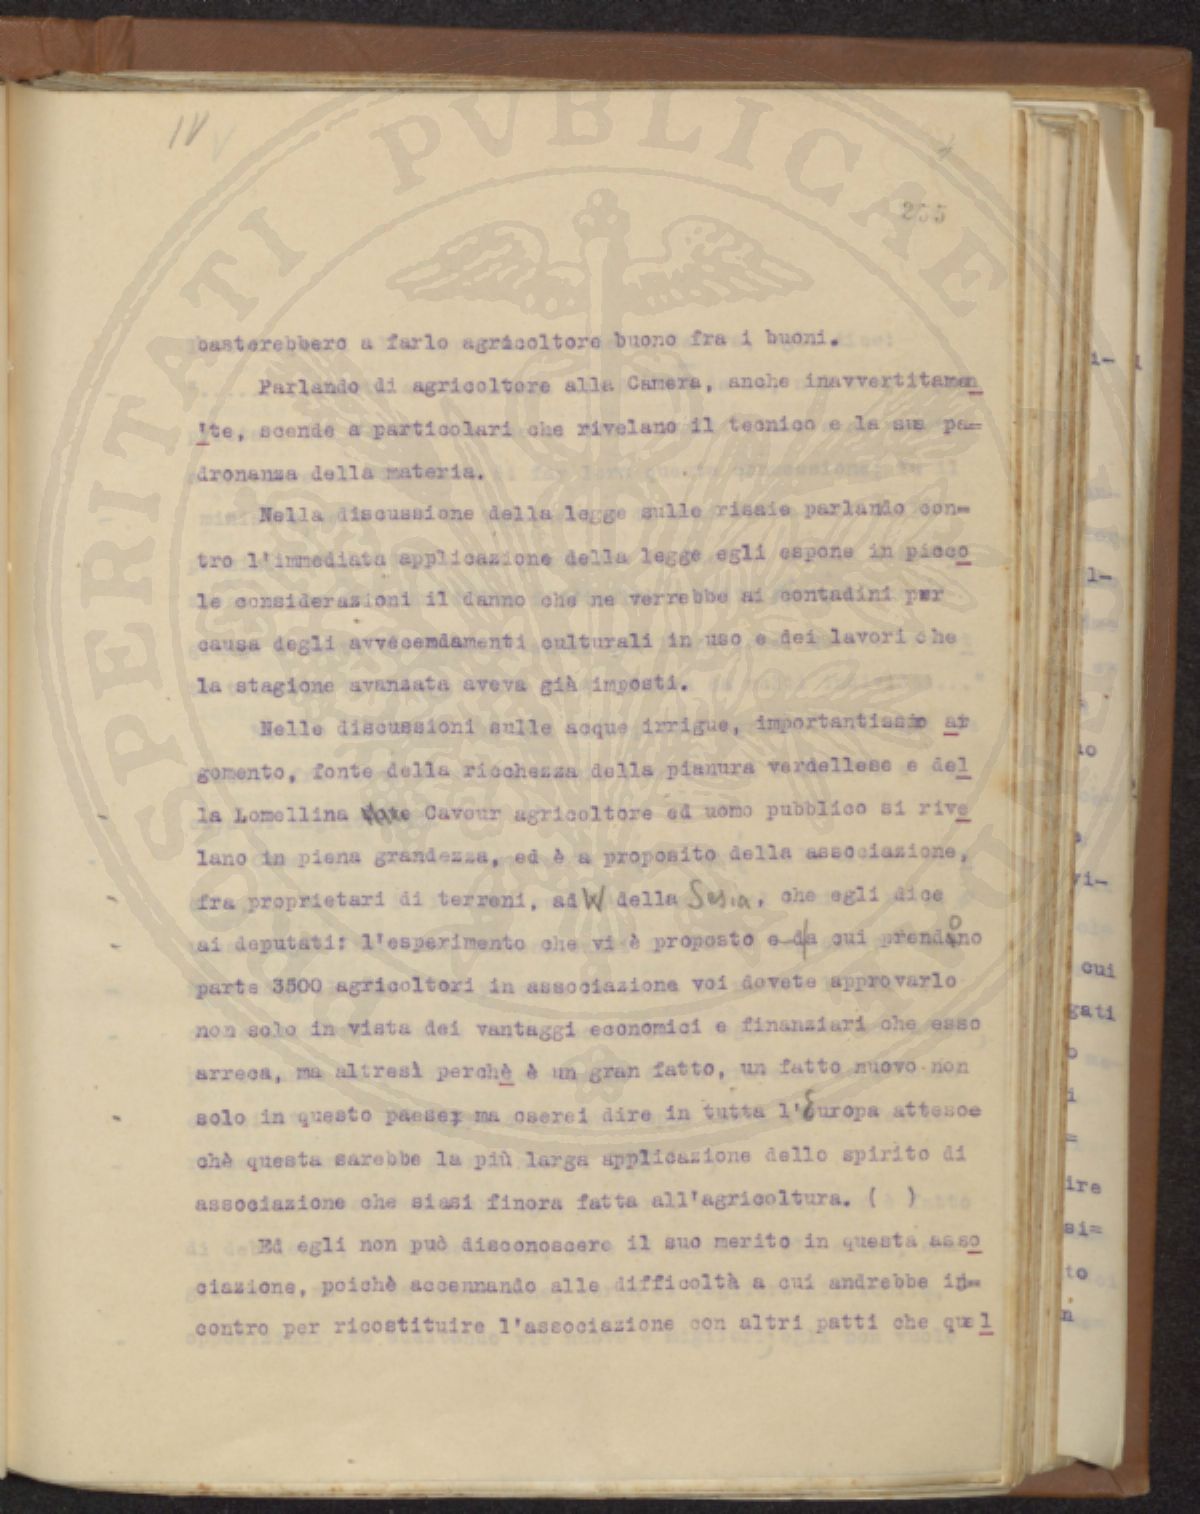 IV
255
basterebbero a farlo agricoltore buono fra i buoni.
Parlando di agricoltore alla Camera, anche inavvertitamen
'te, scende a particolari che rivelano il tecnico e la sua pa=
dronanza della materia.
Nella discussione della legge sulle risaie parlando con=
tro l'immediata applicazione della legge egli espone in picco
le considerazioni il danno che ne verrebbe ai contadini per
causa degli avvecendamenti culturali in uso e dei lavori che
la stagione avanzata aveva già imposti.
Nelle discussioni sulle acque irrigue, importantissio ar
gomento, fonte della ricchezza della pianura verdellese e del
la Lomellina Cavour agricoltore ed uomo pubblico si rive
lano in piena grandezza, ed è a proposito della associazione,
fra proprietari di terreni, ad W della Sesia, che egli dice
ai deputati: l'esperimento che vi è proposto e da cui prendono
parte 3500 agricoltori in associazione voi dovete approvarlo
non solo in vista dei vantaggi economici e finanziari che esso
arreca, ma altresì perchè è un gran fatto, un fatto nuovo non
solo in questo paese, ma oserei dire in tutta l'Europa attesoe
chè questa sarebbe la più larga applicazione dello spirito di
associazione che siasi finora fatta all'agricoltura. ( )
Ed egli non può disconoscere il suo merito in questa asso
ciazione, poichè accennando alle difficoltà a cui andrebbe in=
contro per ricostituire l'associazione con altri patti che quel
SPERITATI PUBLICAE